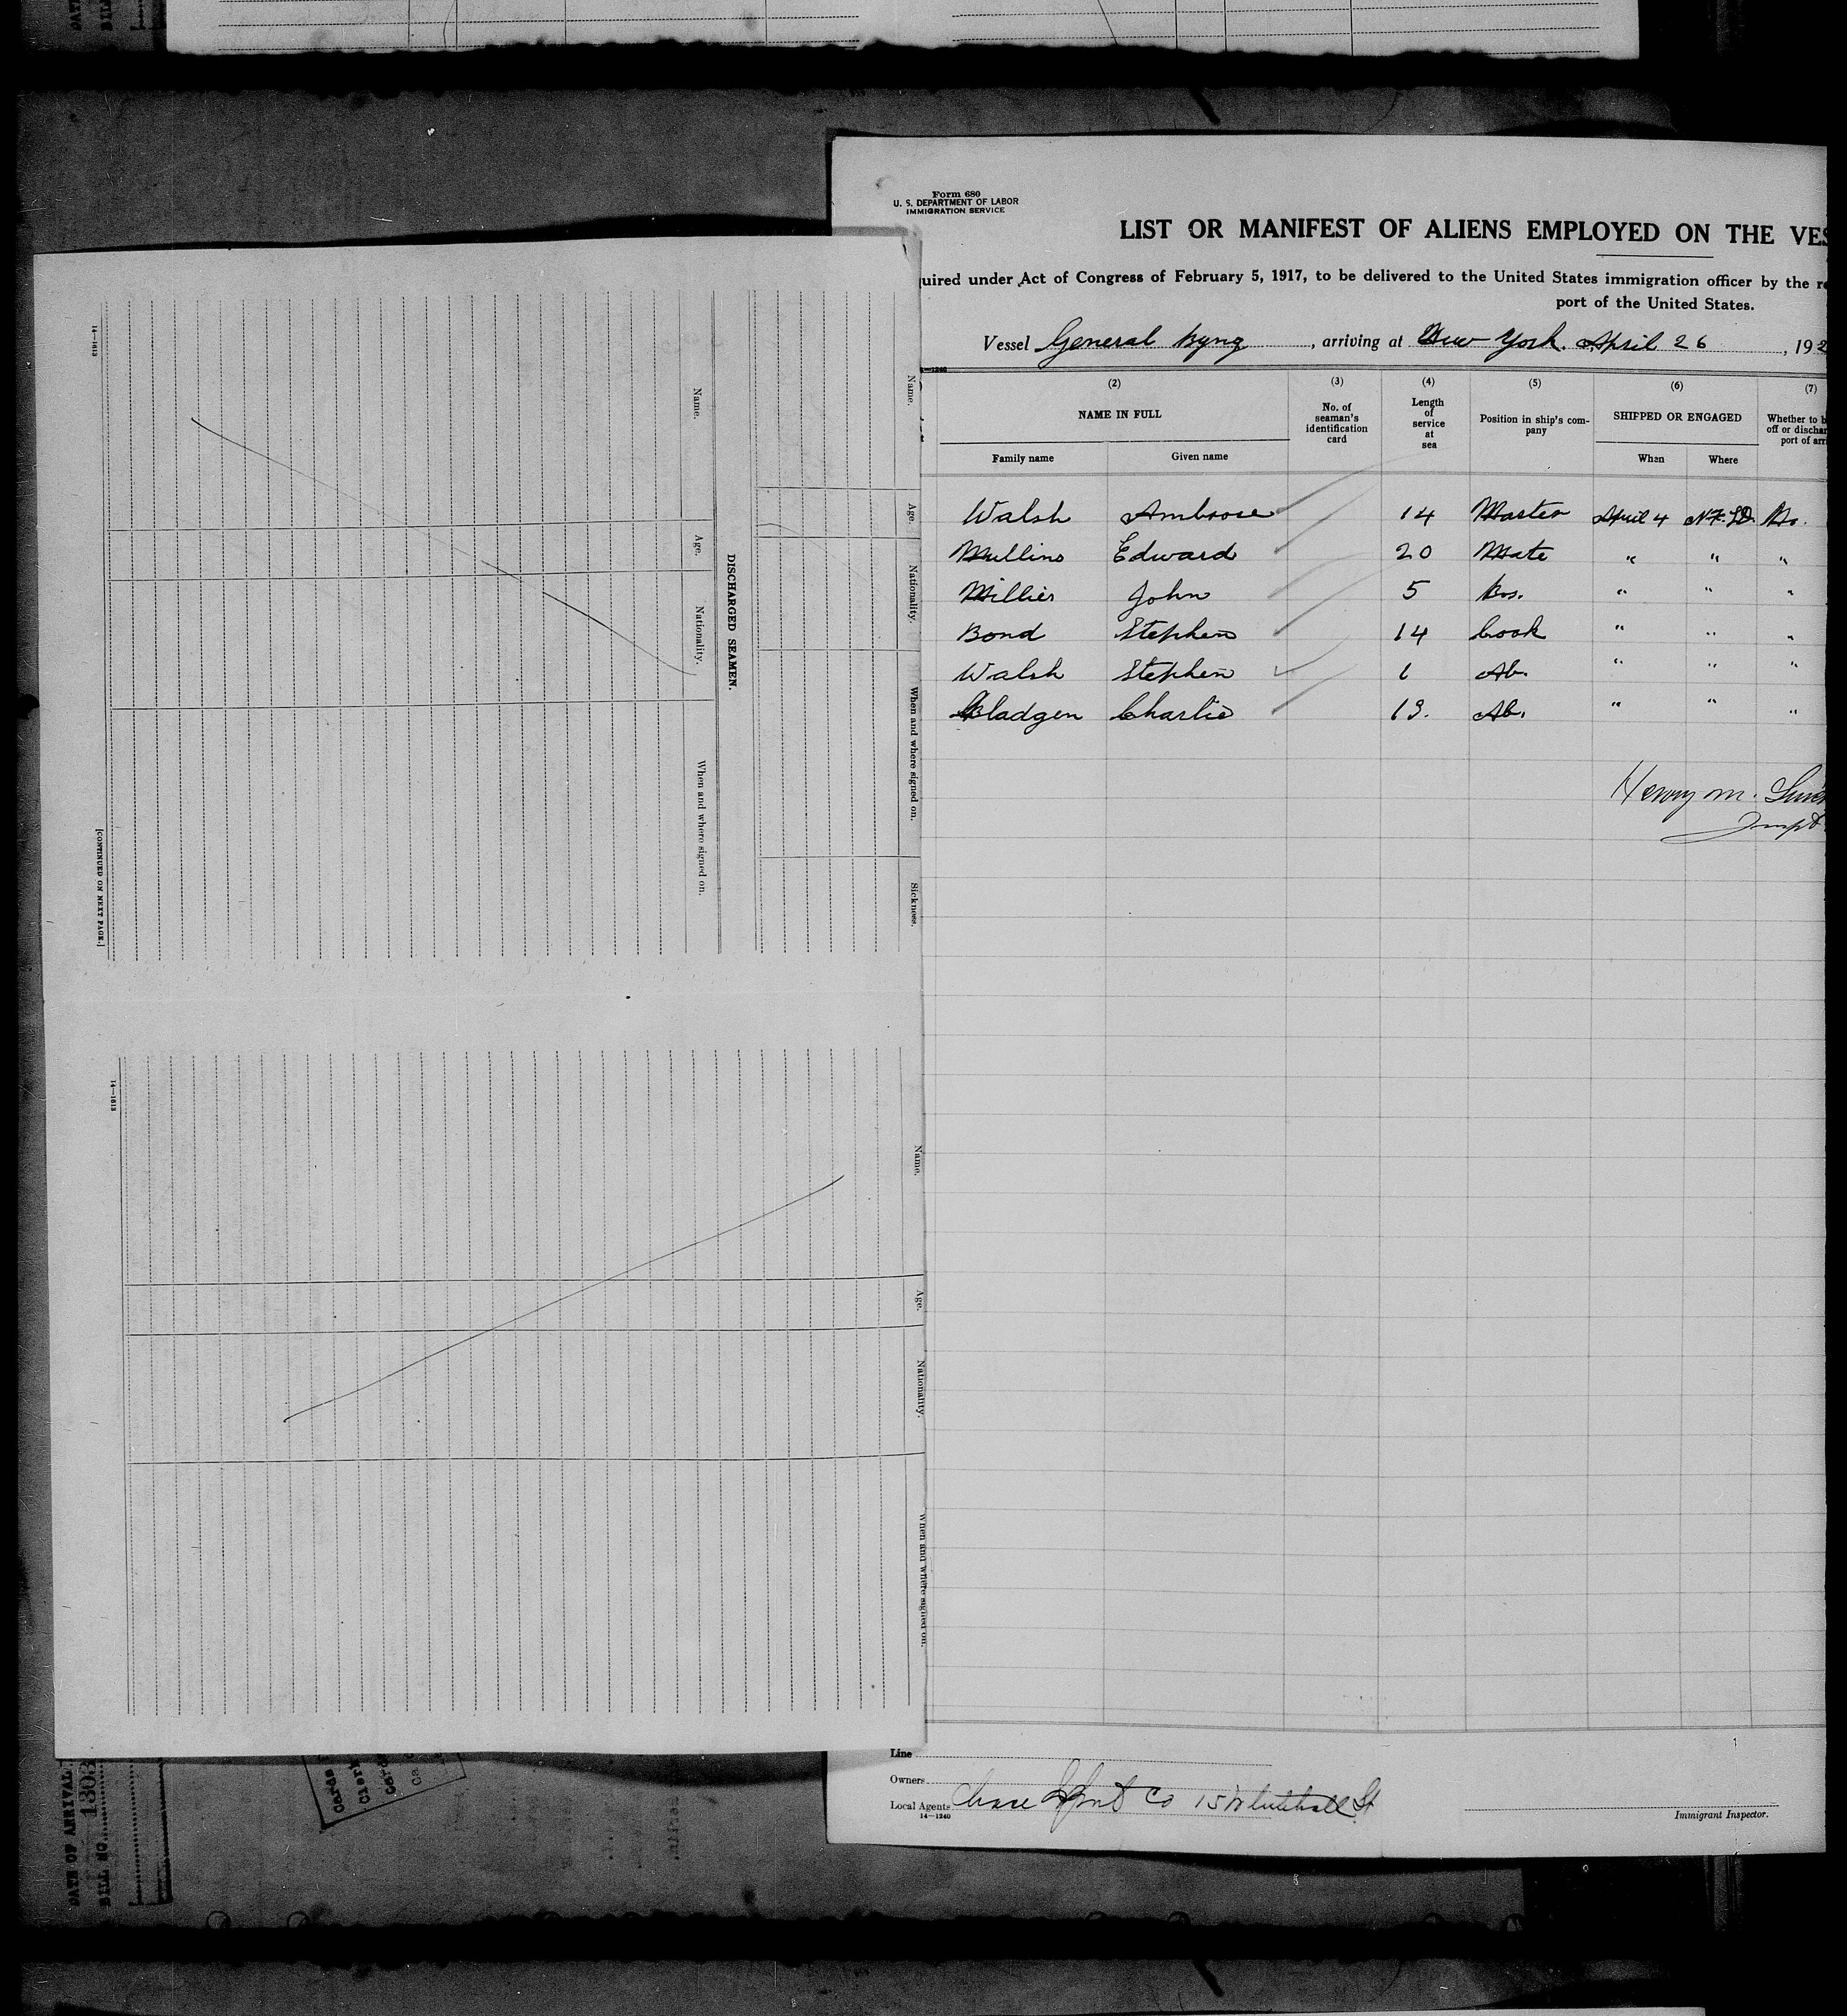 Form 680
U. S. DEPARTMENT OF LABOR
IMMIGRATION SERVICE
LIST OR MANIFEST OF ALIENS EMPLOYED ON THE VES
uired under Act of Congress of February 5, 1917, to be delivered to the United States immigration officer by the re
port of the United States.
Vessel General Byng, arriving at New York. April 26, 192
14—1240
(2) (3) (4) (5) (6) (7)
NAME IN FULL No. of seaman's identification card Length of service at sea Position in ship's com- pany SHIPPED OR ENGAGED Whether to b off or dischar port of arri
Family name Given name When Where
Walsh Ambrose 14 Master April 4 NFLD. No.
Mullins Edward 20 Mate " " "
Millier John 5 Bos. " " "
Bond Stephen 14 Cook " " "
Walsh Stephen 1 Ab. " " "
Bladgen Charlie 13. Ab. " " "
Henry M.
Inspt
Line
Owners
Local Agents Co 15 Whitehall St
14—1240
Immigrant Inspector.
Name. Age. Nationality. When and where signed on. Sickness.
DISCHARGED SEAMEN.
Name. Age. Nationality. When and where signed on.
14—1613
[CONTINUED ON NEXT PAGE.]
Name. Age. Nationality. When and where signed on.
14—1613
DATE OF ARRIVAL
BILL NO. 1303
Cards
Clerk
Card